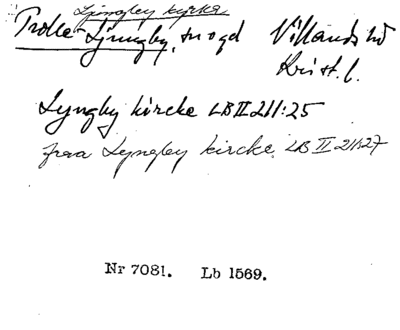 Ljungby kyrka
Trolle-Ljungby, snogd Villands hd
Krist. l.
Lyngby kircke LB II 211:25
fraa Lyngby kircke LB II 211:27
Nr 7081. Lb 1569.